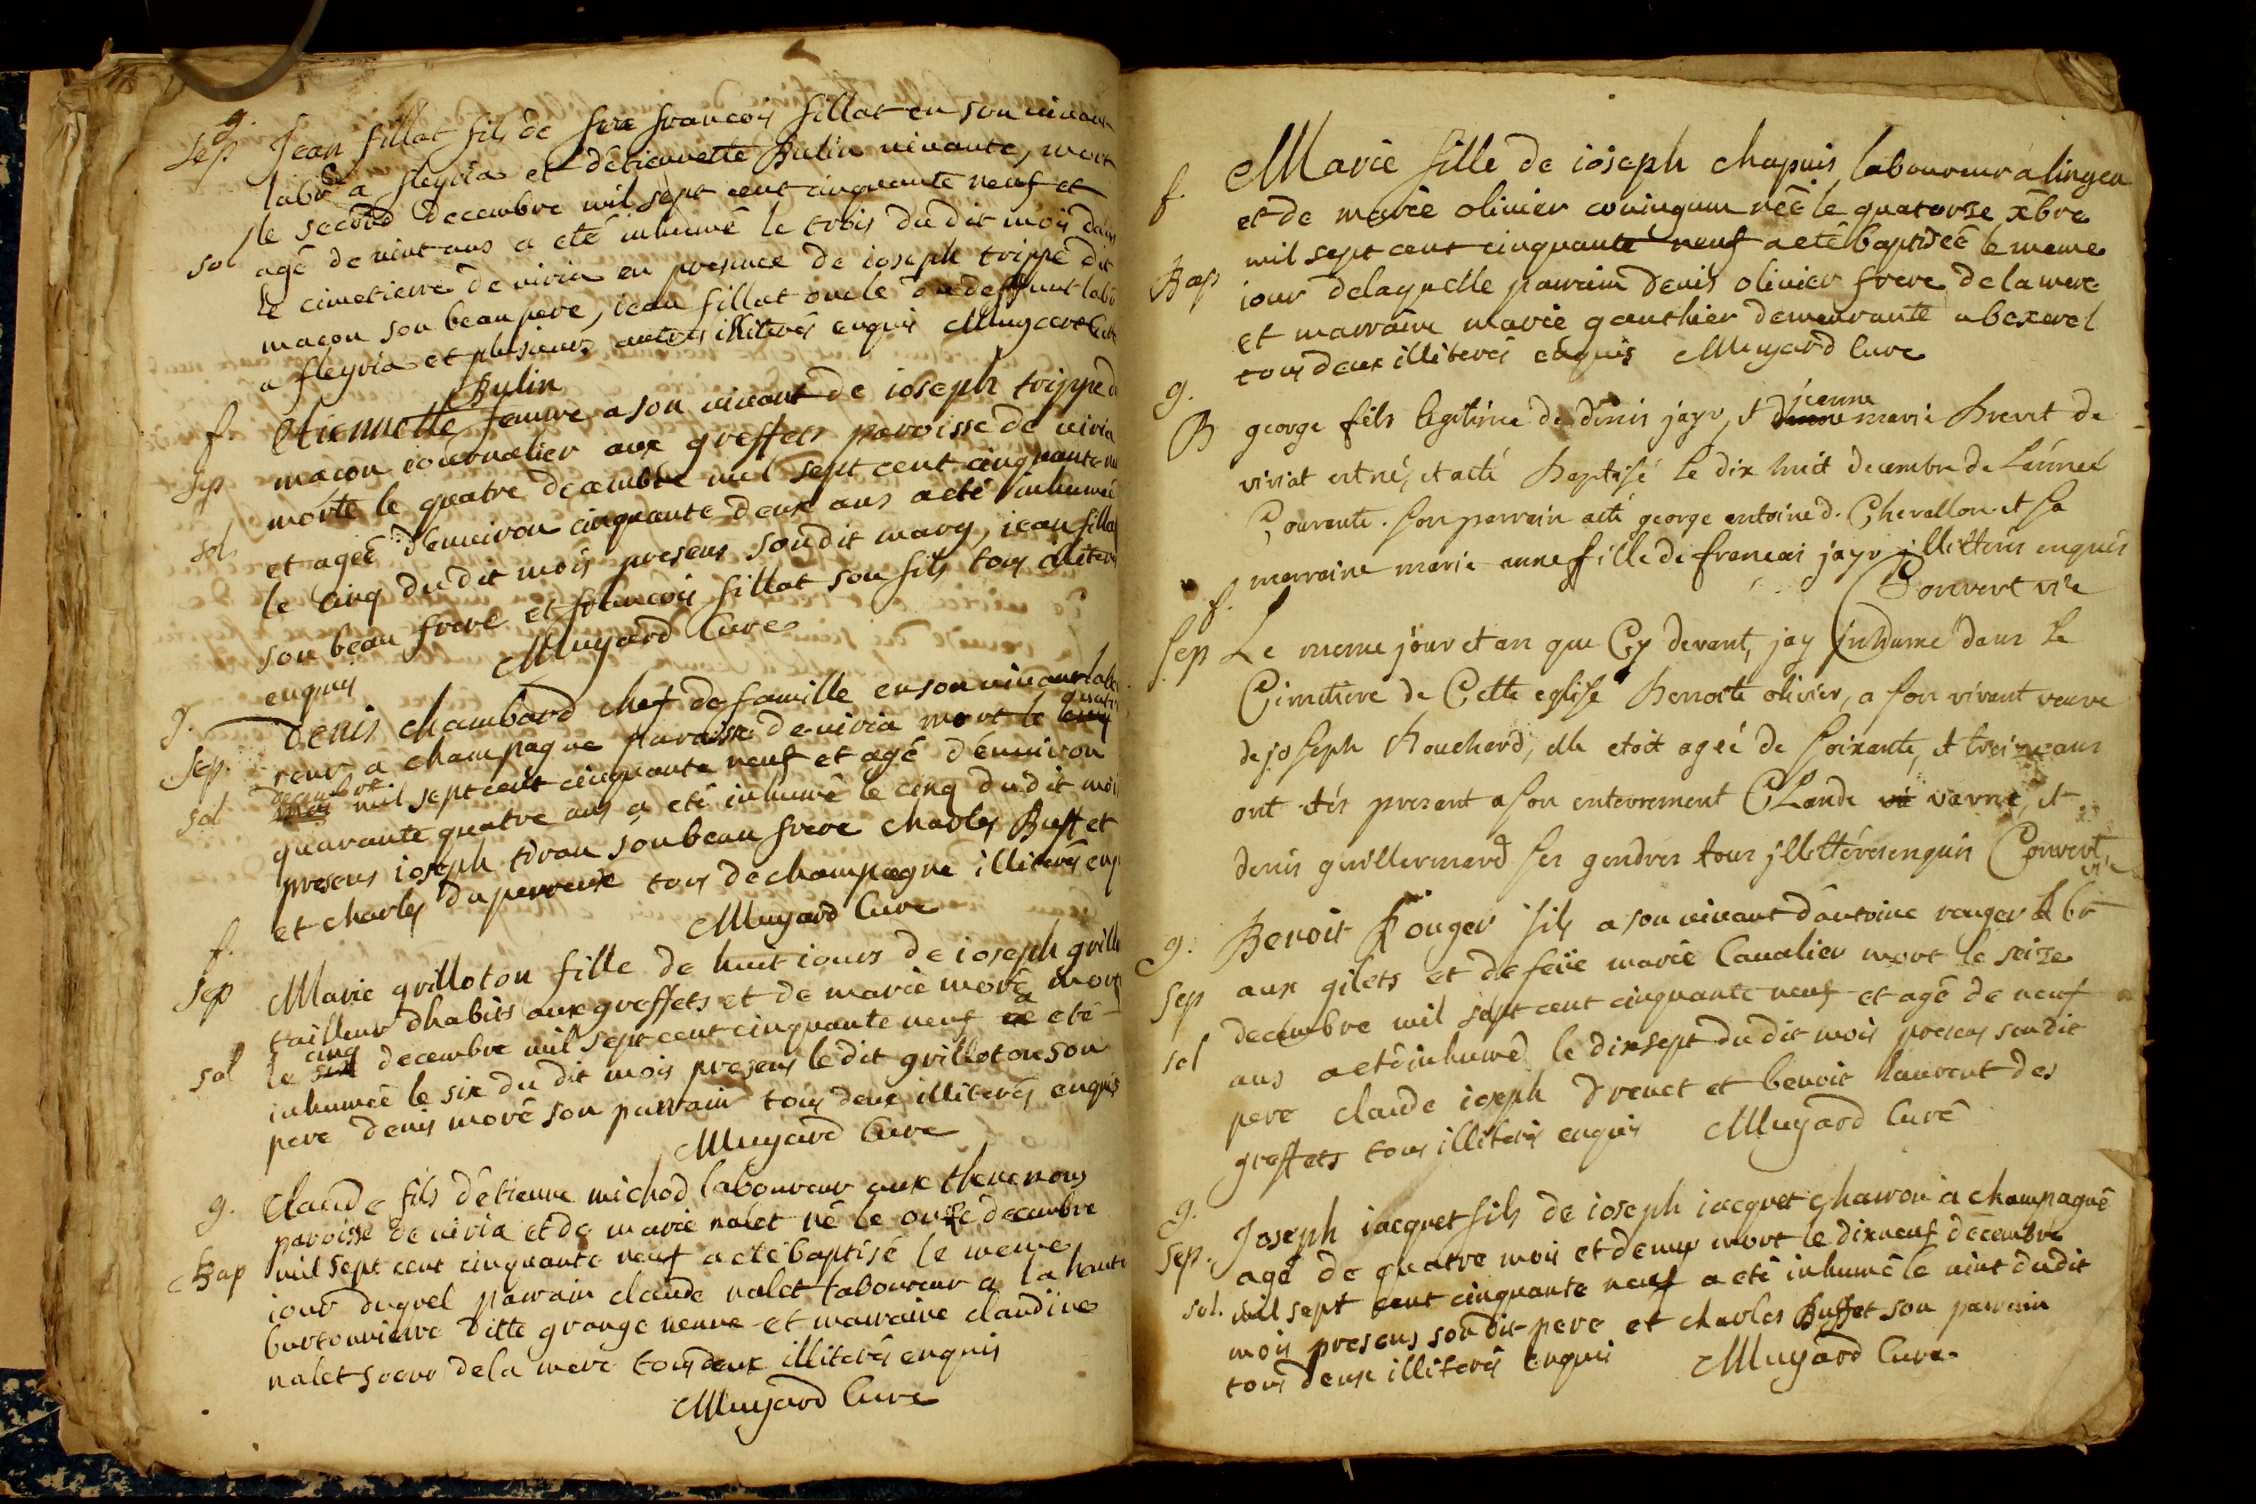 g.
Sep Jean fillat fils de feu francois fillat en son vivant
labr a fleyria et detiennette Bulin vivante, mort
le second decembre mil sept cent cinquante neuf et
sol agé de vint ans a eté inhumé le trois du dit mois dans
le cimetierre de viria en presence de ioseph trippe dit
macon son beau pere, iean fillat oncle du deffunt labr
a fleyria et plusieurs autres illiterés enquis Muyard Cure
Bulin
f. Etiennette femme a son vivant de ioseph trippe d
Sep macon iournalier aux greffets paroisse de viria
morte le quatre decembre mil sept cent cinquante n
sol et ageé d'environ cinquante deux ans a eté inhumeé
le cinq du dit mois presens son dit mary, iean filla
son beau frere et francois fillat son fils tous illiter
enquis Muyard Cure
g. Denis chambard chef de famille en son vivant labo
quatre
Sep. reur a champagne paroisse de viria mort le
decembre
sol mil sept cent cinquante neuf et agé d'environ
quarante quatre ans a eté inhumé le cinq du dit moi
presens ioseph tiran son beau frere charles Buffet
et charles duperreux tous de champagne illiterés enq
Muyard Cure
f.
Sep Marie grilloton fille de huit iours de ioseph grillo
tailleur dhabits aux greffets et de marie moré mort
cinq a
sol le six decembre mil sept cent cinquante neuf eté
inhumeé le six du dit mois presens le dit grilloton son
pere denis moré son parrain tous deux illiterés enquis
Muyard Cure
g. Claude fils d'etienne michod laboureur aux thevenons
paroisse de viria et de marie nalet né le onze decembre
Bap mil sept cent cinquante neuf a eté baptisé le meme
iour duquel parrain claude nalet laboureur a la haute
bretonniere ditte grange neuve et marraine claudine
nalet soeur de la mere tous deux illiterés enquis
Muyard Cure
f. Marie fille de ioseph chapuis laboureur a lingea
et de marie olivier coniugum neé le quatorze xbre
mil sept cent cinquante neuf a eté baptiseé le meme
Bap iour de laquelle parrain denis olivier frere de la mere
et marraine marie gauthier demeurante a bexerel
tous deux illiterés enquis Muyard Cure
g. jeanne
B george fils legitime de denis jayr, et marie Brevet de
viriat est né, et a eté Baptisé le dix huit decembre de l'année
Courante. son parrain a eté george antoine d. Chevallon et sa
marraine marie anne fille de francois jayr jllittérés enquis
f. Convert vre
Sep Le meme jour et an que Cy devant, jay jnhumé dans le
Cimetiere de Cette eglise Benoite olivier, a son vivant veuve
de joseph Bouchard, elle etoit ageé de soixante, et treize ans
ont etés present a son enterrement CLaude varne, et
denis guillermard ses gendres tous jllittérés enquis Convert
g. Benoit Rouger fils a son vivant d'antoine rouger Lbr
aux gilets et de feüe marie Cavalier mort le seize
Sep decembre mil sept cent cinquante neuf et agé de neuf
sol ans a eté inhumé le dixsept du dit mois presens son dit
pere claude ioseph drevet et benoit laurent des
greffets tous illiterés enquis Muyard Curé
g. Joseph iacquet fils de ioseph iacquet charron a champagne
Sep. agé de quatre mois et demy mort le dixneuf decembre
sol. mil sept cent cinquante neuf a eté inhumé le vint du dit
mois presens son dit pere et charles Buffet son parrain
tous deux illiterés enquis Muyard Cure